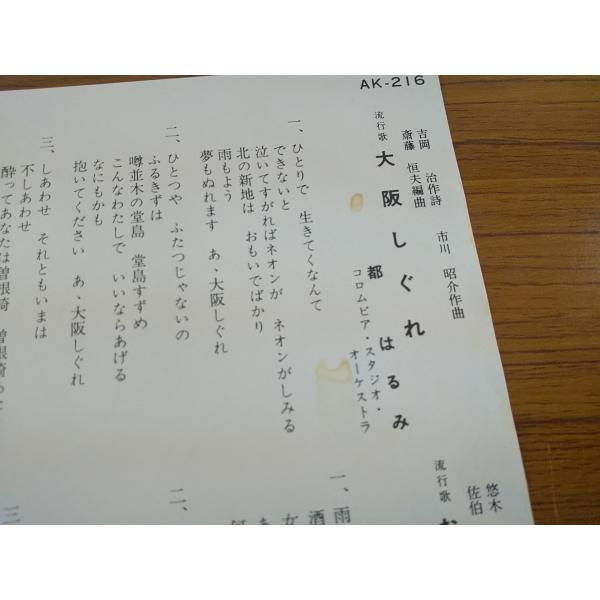 AK-216
流行歌
大阪しぐれ
吉岡 治作詩
市川 昭介作曲
斎藤 恒夫編曲
都 はるみ
コロムビア・スタジオ・
オーケストラ
一、ひとりで 生きてくなんて
できないと
泣いてすがればネオンが ネオンがしみる
北の新地は おもいでばかり
雨もよう
夢もぬれます あゝ大阪しぐれ
二、ひとつや ふたつじゃないの
ふるきずは
噂並木の堂島 堂島すずめ
こんなわたしで いいならあげる
なにもかも
抱いてください あゝ大阪しぐれ
三、しあわせ それともいまは
不しあわせ
酔ってあなたは曽根崎 曽根崎
悠木
佐伯
流行歌
一、雨
酒
女
二、
三